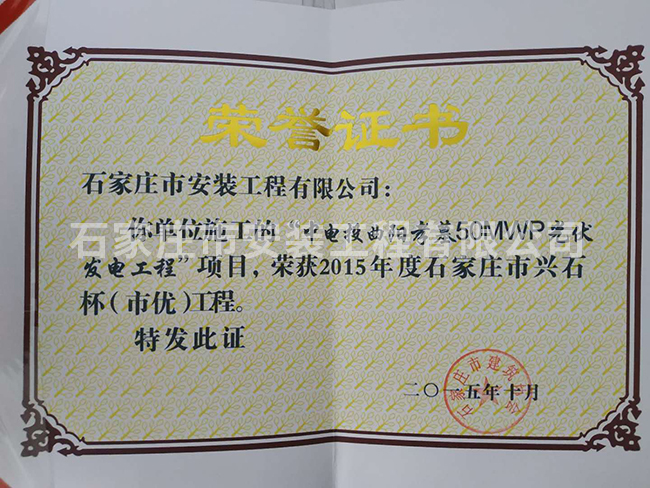 荣誉证书
石家庄市安装工程有限公司：
你单位施工的“中电投曲阳孝墓50MWP光伏
发电工程”项目，荣获2015年度石家庄市兴石
杯（市优）工程。
特发此证
二〇一五年十月
石家庄市安装工程有限公司